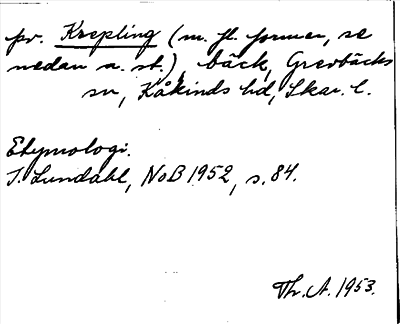 pv. Krepling (m. fl. former, se
nedan a. st.), bäck, Grevbäcks
sn, Kåkinds hd, Skar. l.
Etymologi.
I. Lundahl, NoB 1952, s. 84.
Th. A. 1953.